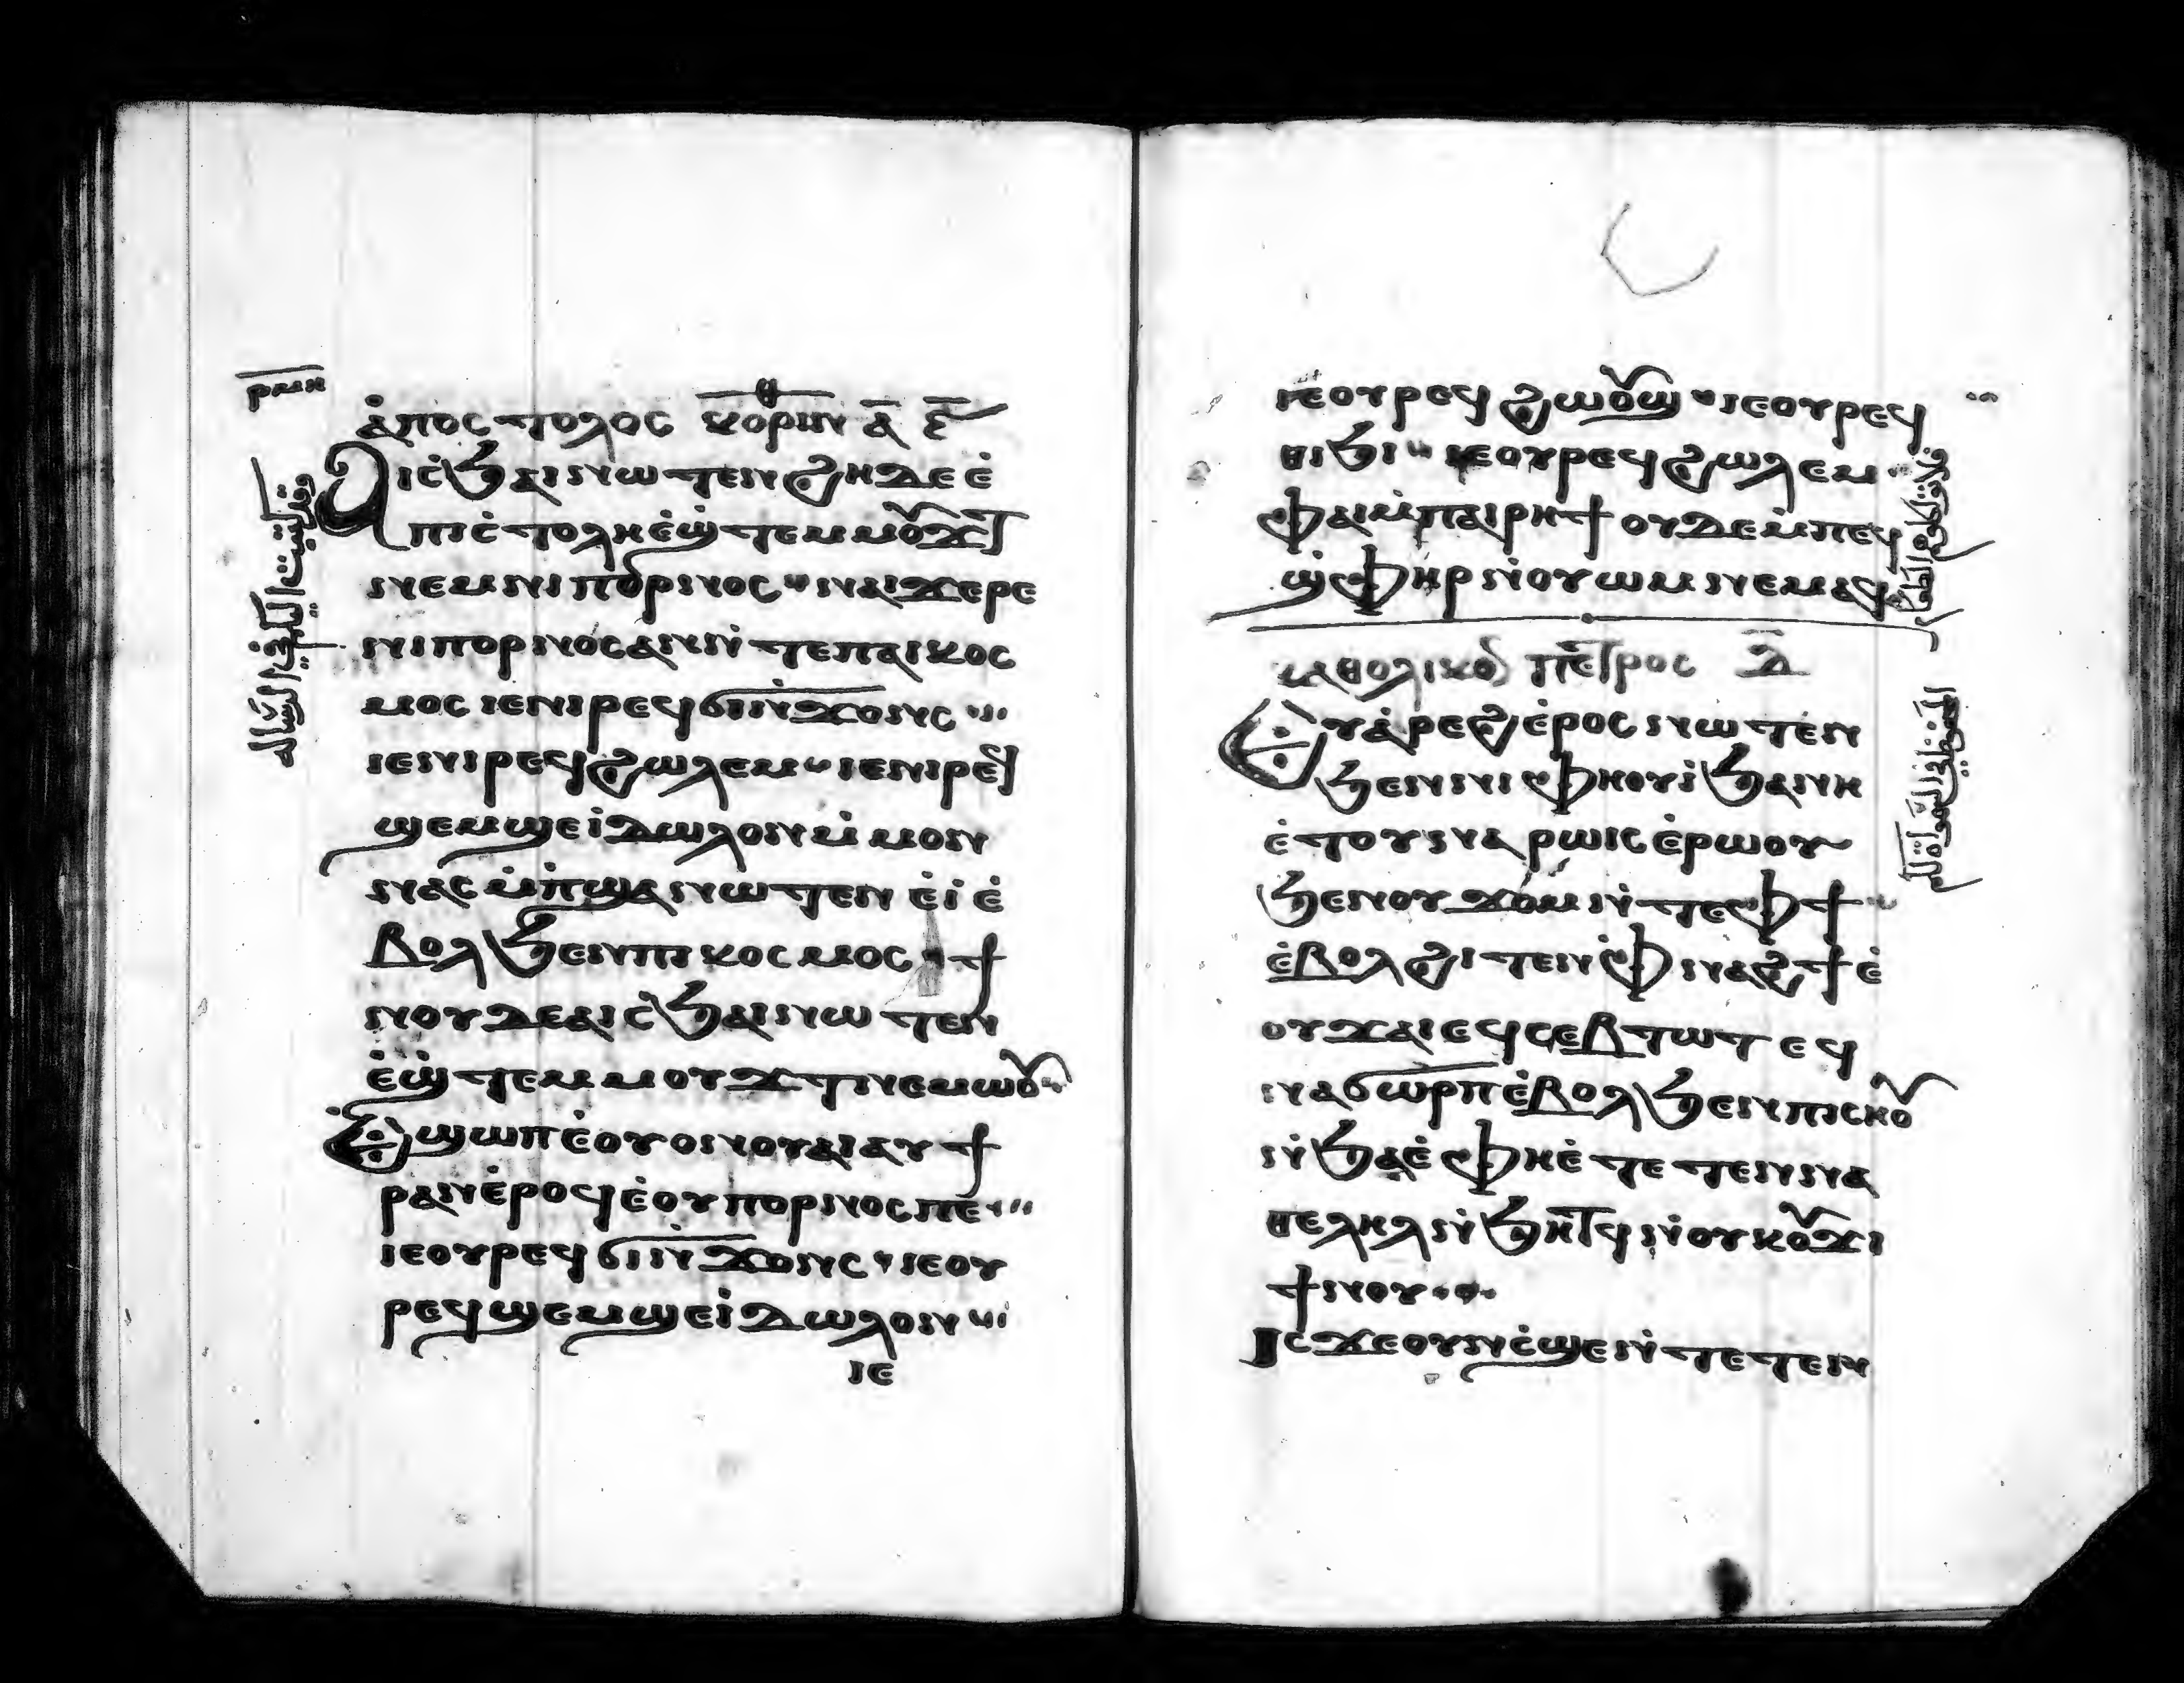 ⲣⲙⲏ
ⲁ̇ⲡⲟⲥⲧⲟⲗⲟⲥ ⲕⲟⲣⲓⲛⲑ ⲁ̅ ⲉ̅
Ⲁⲓⲥ̇ϧⲁⲓⲛⲱⲧⲉⲛϩⲏⲇⲉⲉ̇
ⲡⲓⲥ̇ⲧⲟⲗⲏⲉ̇ϣ̇ⲧⲉⲙⲙⲟⲩϫⲧ
ⲛⲉⲙⲛⲓⲡⲟⲣⲛⲟⲥ ⲛⲁⲓϫⲉⲣⲉ
ⲛⲓⲡⲟⲣⲛⲟⲥⲁⲛⲛ̇ⲧⲉⲡⲁⲓⲕⲟⲥ
ⲙⲟⲥ ⲓⲉⲛⲓⲣⲉϥϭⲓⲛ̇ϫⲟⲛⲥ
ⲓⲉⲛⲓⲣⲉϥϩⲱⲗⲉⲙ ⲓⲉⲛⲓⲣⲉϥ
ϣⲉⲙϣⲉⲓ̇ⲇⲱⲗⲟⲛⲙ̇ⲙⲟⲛ
ⲛⲁⲥⲙ̇ⲡ̇ϣⲁⲛⲱⲧⲉⲛ ⲉ̇ⲓ̇ⲉ̇
ⲃⲟⲗϧⲉⲛⲡⲓⲕⲟⲥⲙⲟⲥ ϯ
ⲛⲟⲩⲇⲉⲁⲓⲥ̇ϧⲁⲓⲛⲱⲧⲉⲛ
ⲉ̇ϣ̇ⲧⲉⲙⲙⲟⲩϫⲧⲛⲉⲙⲱⲟⲩ
Ⲉ̇ϣⲱⲡⲉ̇ⲟⲩⲟⲛⲟⲩⲁⲓⲁⲩϯ
ⲣⲁⲛⲉ̇ⲣⲟϥⲉ̇ⲟⲩⲡⲟⲣⲛⲟⲥⲡⲉ
ⲓⲉⲟⲩⲣⲉϥϭⲓⲛ̇ϫⲟⲛⲥ ⲓⲉⲟⲩ
ⲣⲉϥϣⲉⲙϣⲉⲓ̇ⲇⲱⲗⲟⲛ
ⲓⲉ
ⲓⲉⲟⲩⲣⲉϥϩⲱⲟⲩϣ ⲓⲉⲟⲩⲣⲉϥ
ⲑⲓϧⲓ ⲓⲉⲟⲩⲣⲉϥϩⲱⲗⲉⲙ
ⲫⲁⲓⲙ̇ⲡⲁⲓⲣⲏϯⲟⲩⲇⲉⲙ̇ⲡⲉⲣ
ϣ̇ⲫⲏⲣⲛ̇ⲟⲩⲱⲙⲛⲉⲙⲁϥ
ⲕⲁⲑⲟⲗⲓⲕⲟⲛ ⲡⲉⲧⲣⲟⲥ ⲇ̅
Ⲉⲩⲁ̇ⲣⲉϩⲉ̇ⲣⲟⲥⲛⲱⲧⲉⲛ
ϧⲉⲛⲛⲓⲫⲏⲟⲩⲓ̇ϧⲁⲛⲏ
ⲉ̇ⲧⲟⲩⲛⲁⲣⲱⲓⲥⲉ̇ⲣⲱⲟⲩ
ϧⲉⲛⲟⲩϫⲟⲙⲛ̇ⲧⲉⲫϯ
ⲉ̇ⲃⲟⲗϩⲓⲧⲉⲛⲫ̇ⲛⲁϩϯⲉ̇
ⲟⲩϫⲁⲓⲉϥⲥⲉⲃⲧⲱⲧⲉϥ
ⲛⲁϭⲱⲣⲡⲉ̇ⲃⲟⲗϧⲉⲛⲡⲓⲥⲏⲟⲩ
ⲛ̇ϧⲁⲉ̇ⲫⲏⲉ̇ⲧⲉⲧⲉⲛⲛⲁ
ⲑⲉⲗⲏⲗⲛ̇ϧⲏⲧϥⲛ̇ⲟⲩⲕⲟⲩϫⲓ
ϯⲛⲟⲩ
Ⲓⲥϫⲉⲟⲩⲛⲥ̇ϣⲉⲛ̇ⲧⲉⲧⲉⲛ